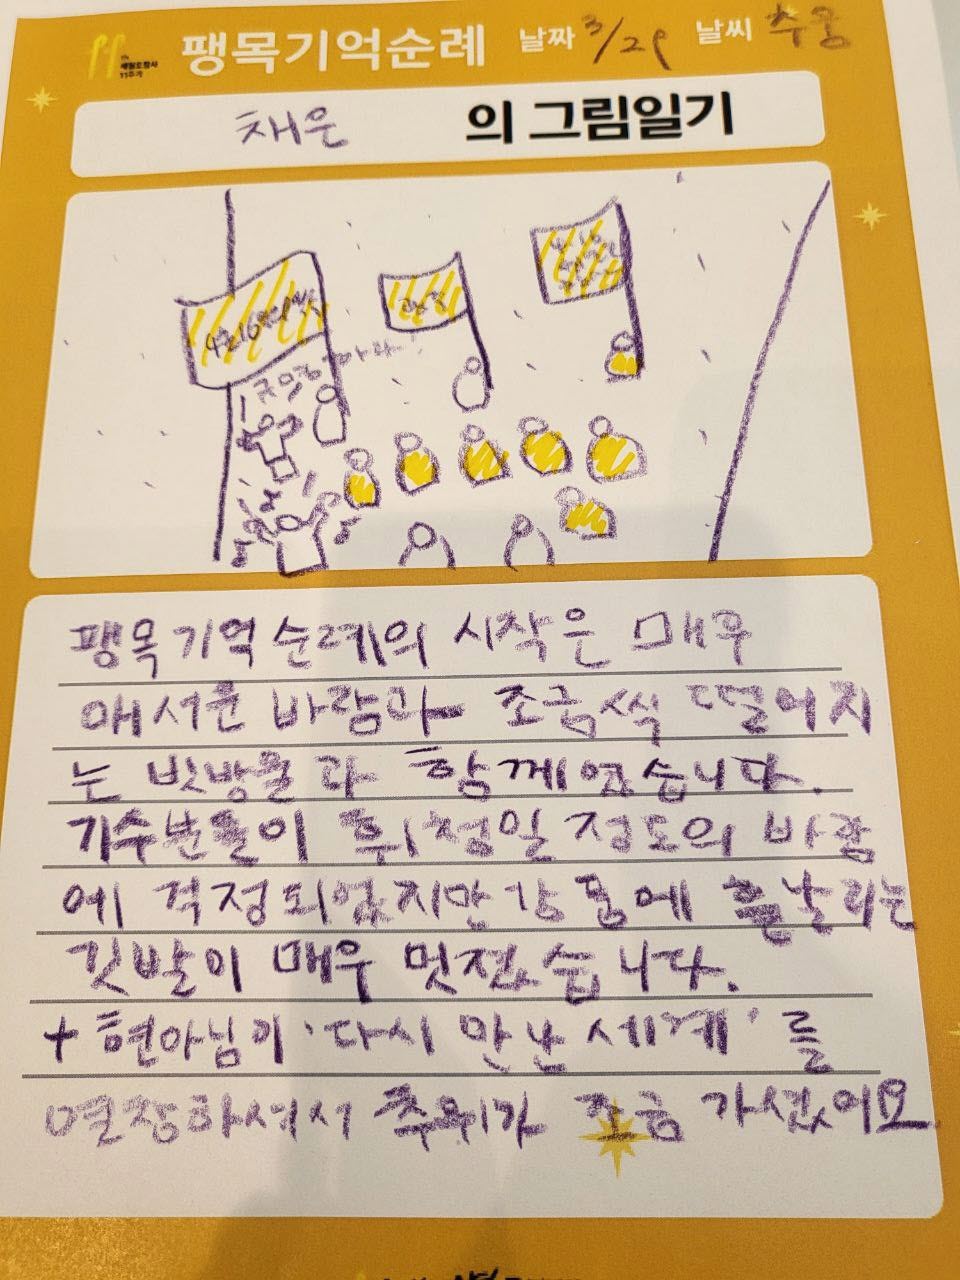 세월호참사
11주기
팽목기억순례 날짜 3/29 날씨 추움
채은 의 그림일기
팽목기억순례의 시작은 매우
매서운 바람과 조금씩 떨어지
는 빗방울과 함께였습니다.
기수분들이 휘청일 정도의 바람
에 걱정되었지만 강풍에 흩날리는
깃발이 매우 멋졌습니다.
+ 현아님이 '다시 만난 세계'를
열창하셔서 추위가 조금 가셨어요